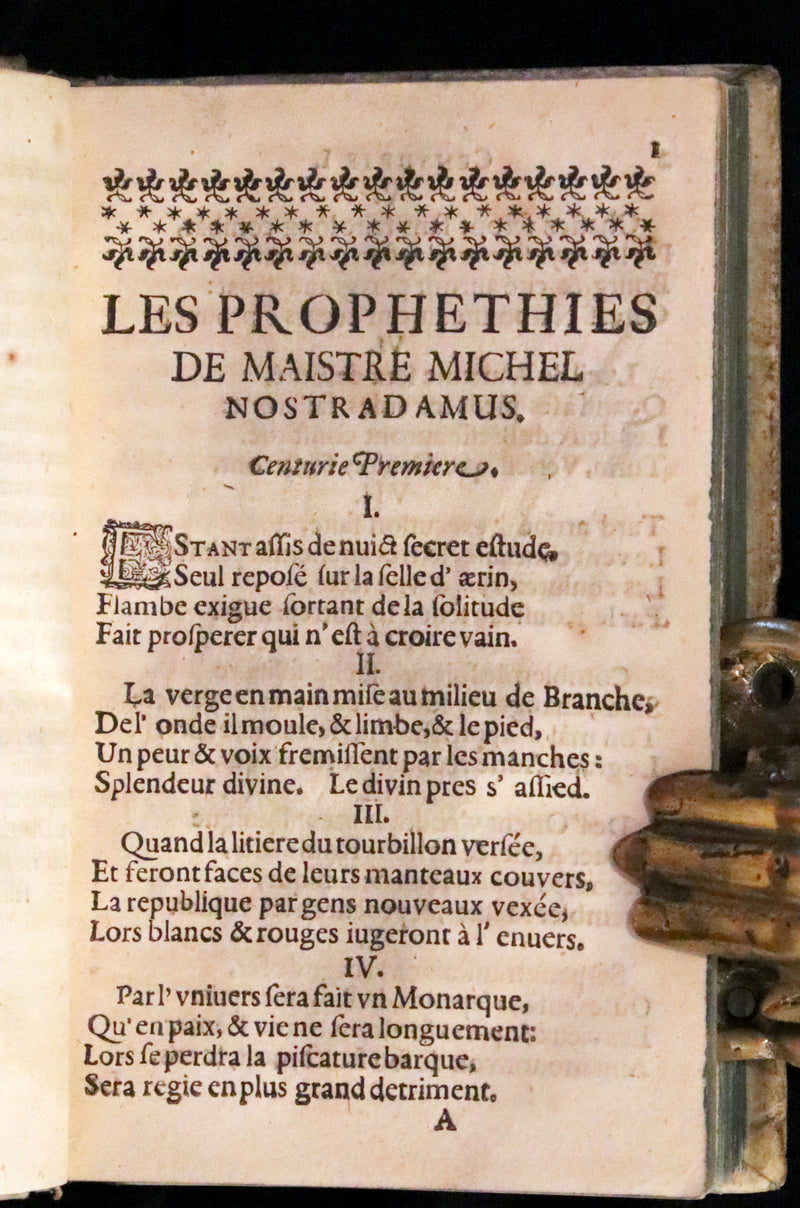 1
LES PROPHETHIES
DE MAISTRE MICHEL
NOSTRADAMUS.
Centurie Premiere.
I.
ESTANT aſſis de nuict ſecret eſtude,
Seul repoſé ſur la ſelle d' ærin,
Flambe exigue ſortant de la ſolitude
Fait proſperer qui n'eſt à croire vain.
II.
La verge en main miſe au milieu de Branche,
De l' onde il moule, & limbe, & le pied,
Un peur & voix fremiſſent par les manches:
Splendeur divine. Le divin pres s' aſſied.
III.
Quand la litiere du tourbillon verſée,
Et feront faces de leurs manteaux couvers,
La republique par gens nouveaux vexée,
Lors blancs & rouges iugeront à l' enuers.
IV.
Par l' vniuers ſera fait vn Monarque,
Qu' en paix, & vie ne ſera longuement:
Lors ſe perdra la piſcature barque,
Sera regie en plus grand detriment.
A